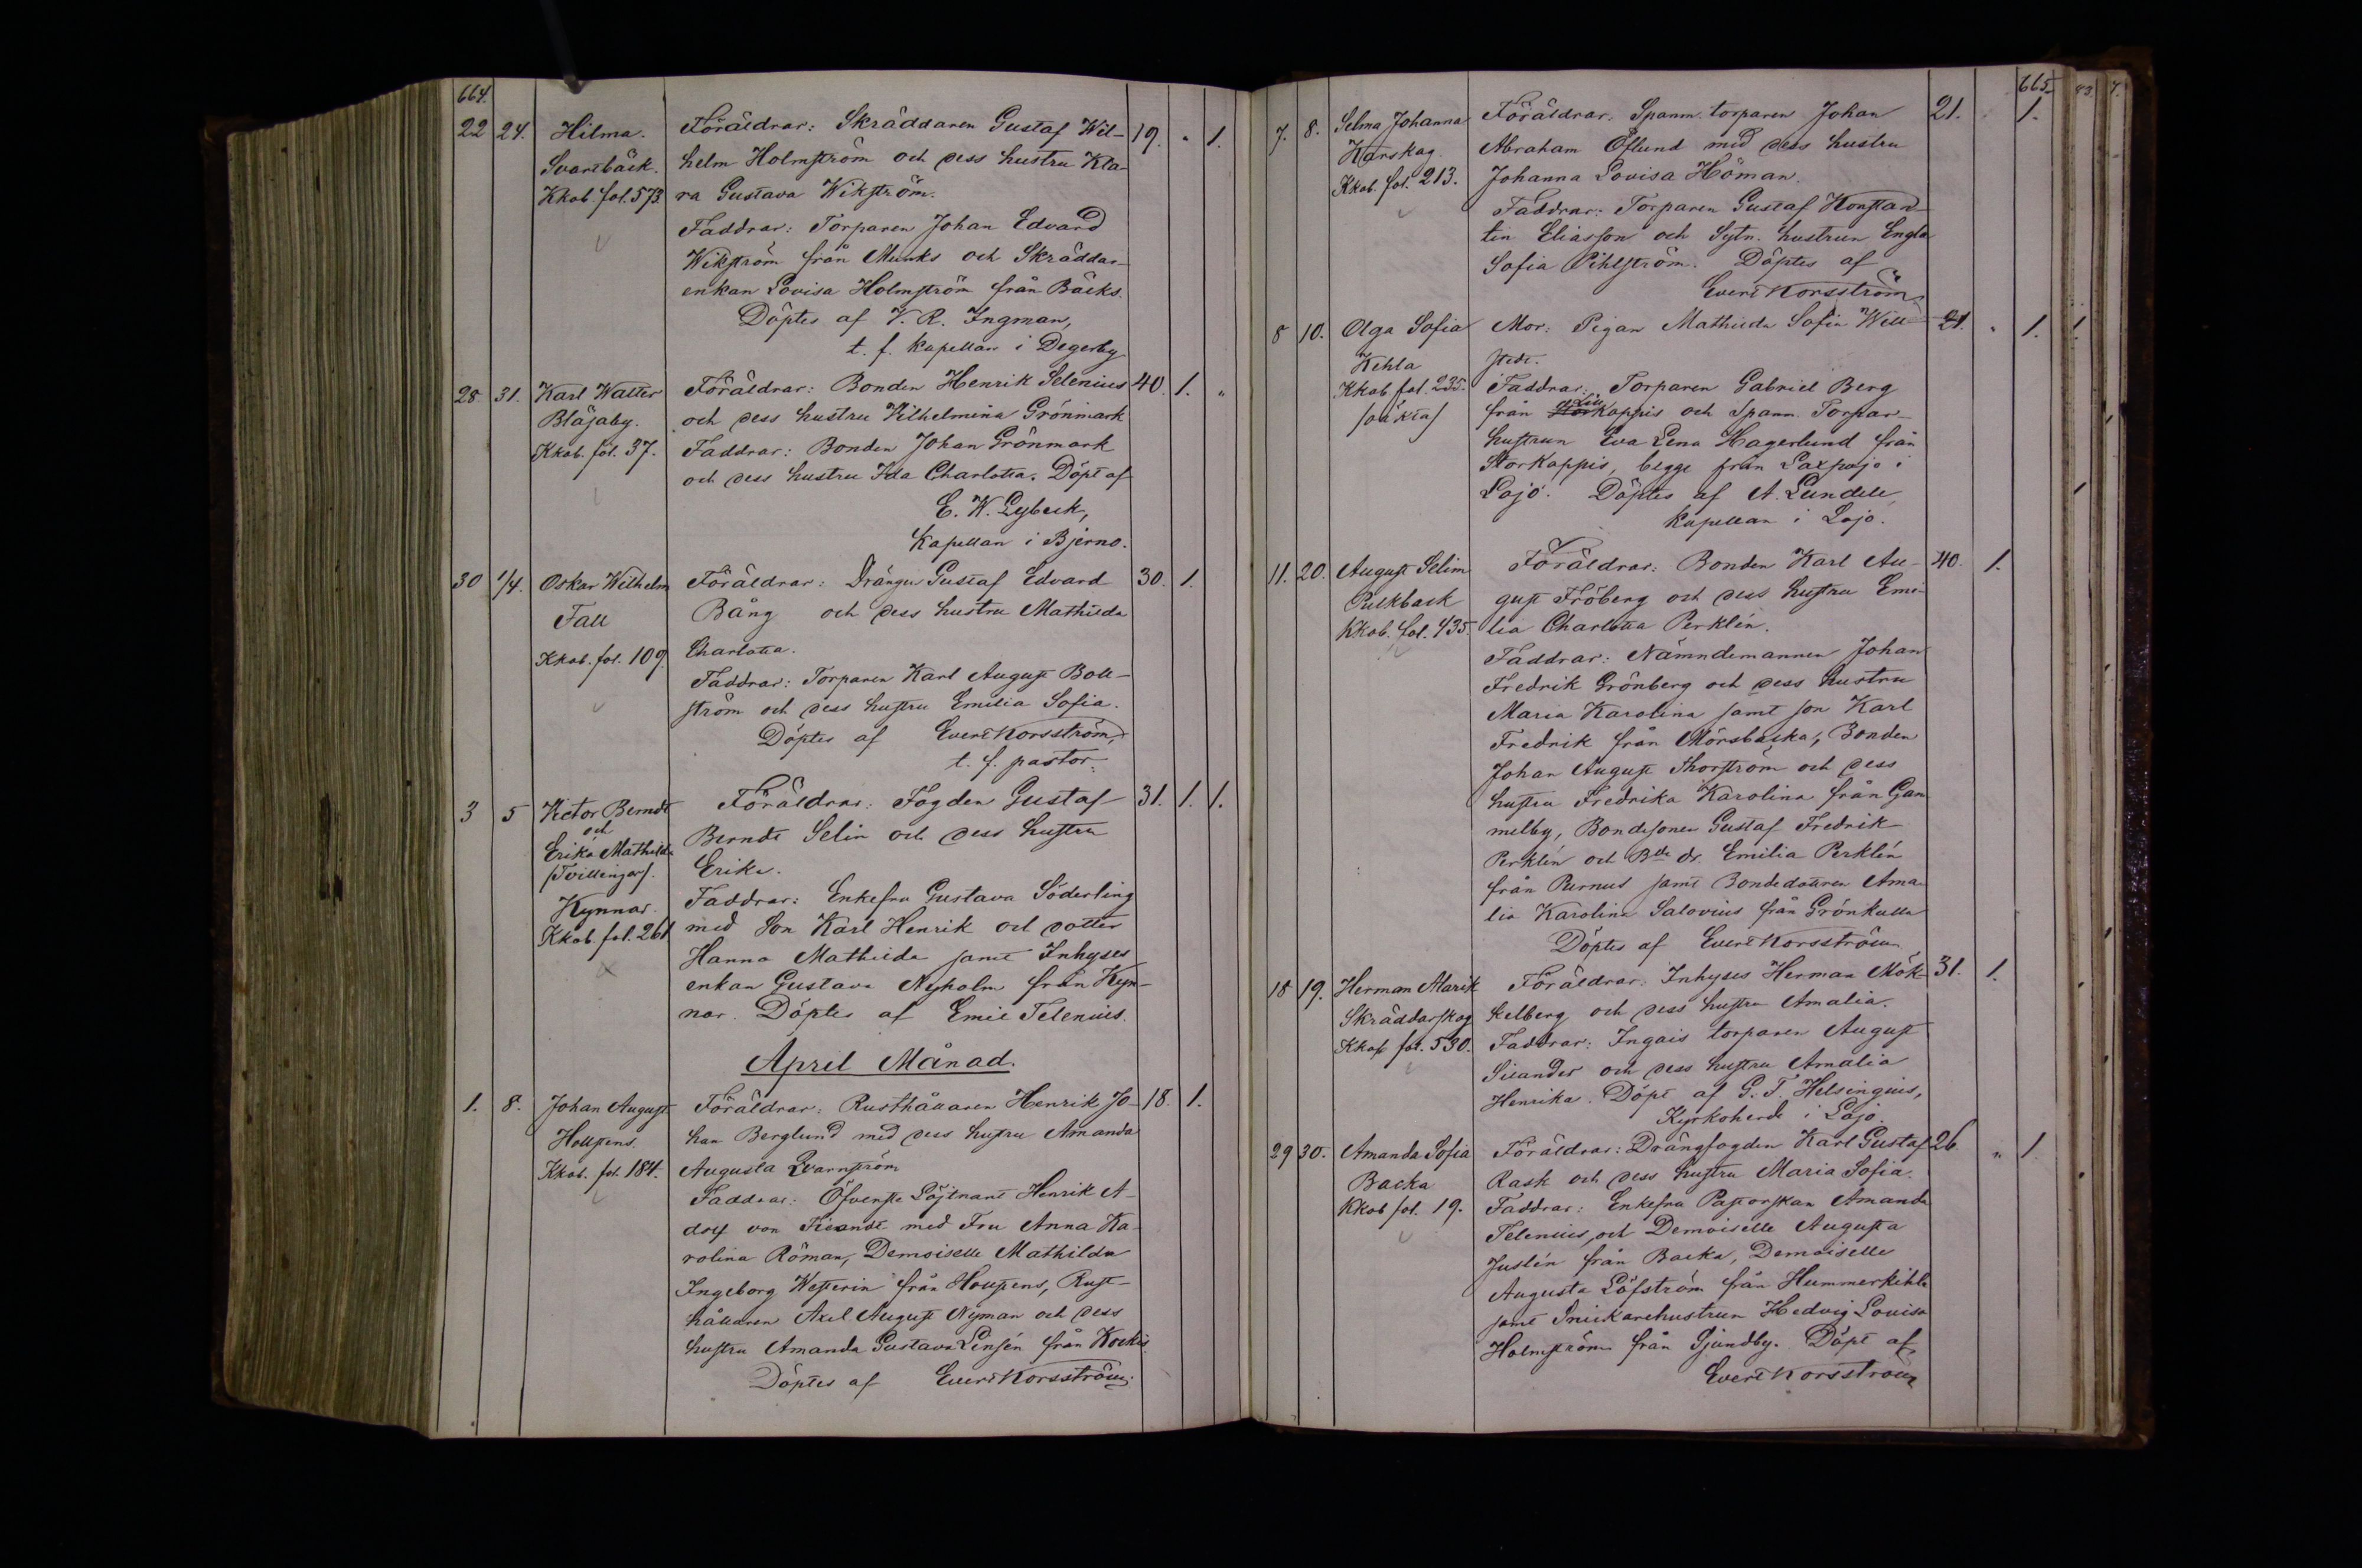 664.
22 24. Hilma. Föräldrar: Skräddaren Gustaf Wil- 19. " 1.
Svartbäck. helm Holmström och dess hustru Kla-
Kkob. fol. 573. ra Gustava Wikström.
Faddrar: Torparen Johan Edvard
Wikström från Munks och Skräddar-
enkan Lovisa Holmström från Bäcks.
Döptes af V. R. Ingman,
t. f. kapellan i Degerby
28. 31. Karl Walter Föräldrar: Bonden Henrik Selenius 40. 1. "
Blåjaby. och dess hustru Vilhelmina Grönmark
Kkob. fol. 37. Faddrar: Bonden Johan Grönmark
och dess hustru Ida Charlotta. Döpt af
E. W. Lybeck,
Kapellan i Bjerno.
30 1/4. Oskar Wilhelm Föräldrar: Drängen Gustaf Edvard 30. 1.
Fall Bång och dess hustru Mathilda
Kkob. fol. 109. Charlotta.
Faddrar: Torparen Karl August Boll-
ström och dess hustru Emilia Sofia.
Döptes af Evert Korsström,
t. f. pastor.
3 5 Victor Berndt Föräldrar: Fogden Gustaf 31. 1. 1.
och
Erika Mathilda Berndt Selin och dess hustru
/Tvillingar/. Erika.
Kynnar. Faddrar: Enkefru Gustava Söderling
Kkob. fol. 261 med Son Karl Henrik och dotter
Hanna Mathilda samt Inhyses
enkan Gustava Nyholm från Kyn-
nar. Döptes af Emil Telenius.
April Månad.
1. 8. Johan August Föräldrar: Rusthållaren Henrik Jo- 18. 1.
Hollstens. han Berglund med dess hustru Amanda
Kkob. fol. 184. Augusta Qvarnström
Faddrar: Öfverste Löjtnant Henrik A-
dolf von med Fru Anna Ka-
rolina Röman, Demoiselle Mathilda
Ingeborg Westerin från Hollstens, Rust-
hållaren Axel August Nyman och dess
hustru Amanda Gustava Linsén från Kockis
Döptes af Evert Korsström.
665
7. 8. Selma Johanna Föräldrar: Spanm. torparen Johan 21. 1.
Karskag Abraham Öflund med dess hustru
Kkob. fol. 213. Johanna Lovisa Höman.
Faddrar: Torparen Gustaf Konstan-
tin Eliasson och Sytn. hustrun Engla
Sofia Pihlström. Döptes af
Evert Korsström
8 10. Olga Sofia Mor: Pigan Mathilda Sofia Will- 21. " 1.
Kehla stedt.
Kkob fol. 235. Faddrar: Torparen Gabriel Berg
/oäkta/ från Lillkappis och Spanm. Torpar-
hustrun Eva Lena Hagerlund från
Storkappis, begge från Laxpojo i
Lojo. Döptes af A. Lundell,
kapellan i Lojo.
11. 20. August Selim Föräldrar: Bonden Karl Au- 40. 1.
Pulkback gust Fröberg och dess hustru Emi-
Kkob. fol. 435. lia Charlotta Perklén.
Faddrar: Nämndemannen Johan
Fredrik Grönberg och dess hustru
Maria Karolina samt son Karl
Fredrik från Mörsbacka, Bonden
Johan August Thorström och dess
hustru Fredrika Karolina från Gam
melby, Bondesonen Gustaf Fredrik
Perklén och Bde dr. Emilia Perklén
från Purnus samt Bondedottren Ama-
lia Karolina Salovius från Grönkulla
Döptes af Evert Korsström
18 19. Herman Alarik Föräldrar: Inhyses Herman Mök- 31. 1.
Skräddarskog kelberg och dess hustru Amalia.
Kkob fol. 530. Faddrar: Ingais torparen August
Silander och dess hustru Amalia
Henrika. Döpt af G. T. Helsingius,
Kyrkoherde i Lojo.
29 30. Amanda Sofia Föräldrar: Drängfogden Karl Gustaf 26. " 1
Backa Rask och dess hustru Maria Sofia.
Kkob fol. 19. Faddrar: Enkefru Pastorskan Amanda
Telenius, och Demoiselle Augusta
Juslén från Backa, Demoiselle
Augusta Löfström från Hummerkihla
samt Snickarehustrun Hedvig Lovisa
Holmström från Sjundby. Döpt af
Evert Korsström